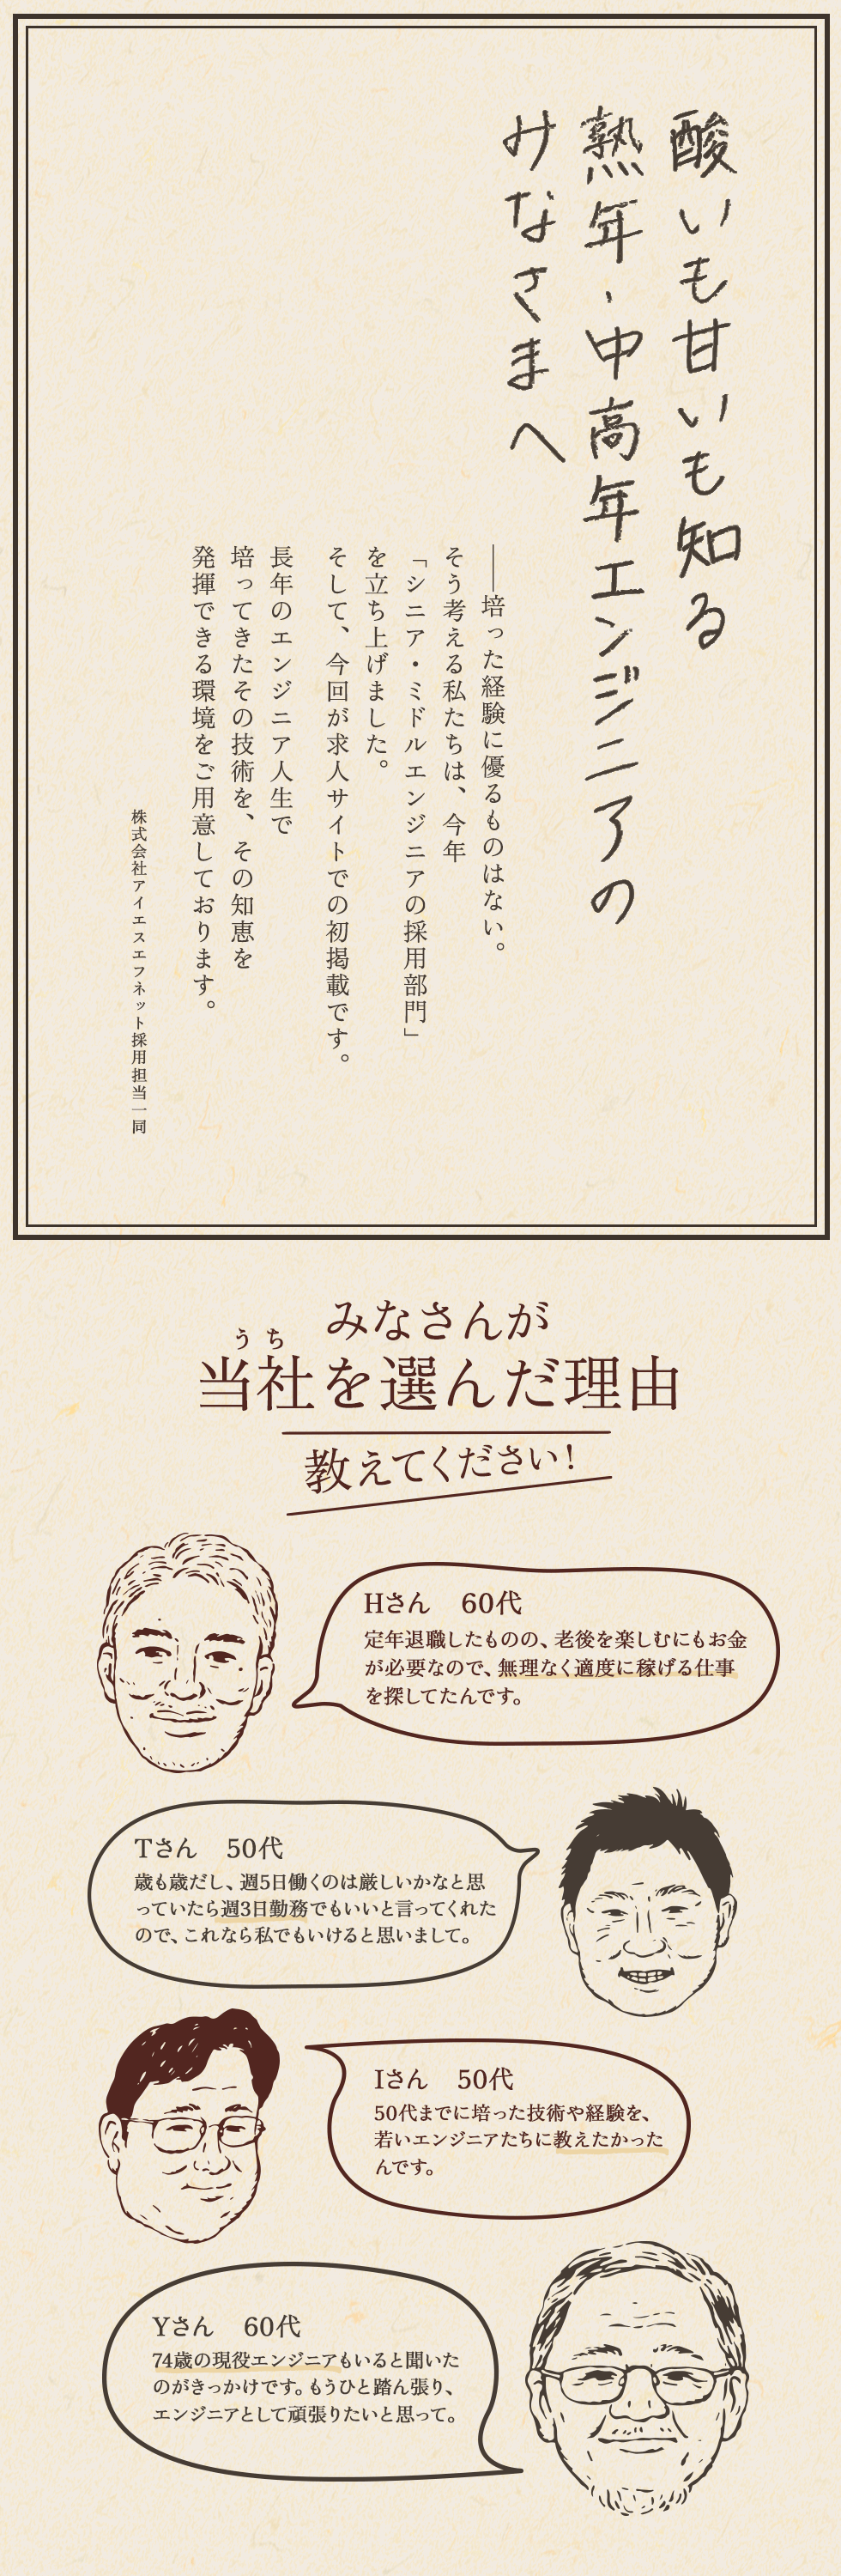 酸いも甘いも知る
熟年、中高年エンジニアの
みなさまへ
――培った経験に優るものはない。
そう考える私たちは、今年
「シニア・ミドルエンジニアの採用部門」
を立ち上げました。
そして、今回が求人サイトでの初掲載です。
長年のエンジニア人生で
培ってきたその技術を、その知恵を
発揮できる環境をご用意しております。
株式会社アイエスエフネット採用担当一同
みなさんが
うち
当社を選んだ理由
教えてください!
Hさん 60代
定年退職したものの、老後を楽しむにもお金
が必要なので、無理なく適度に稼げる仕事
を探してたんです。
Tさん 50代
歳も歳だし、週5日働くのは厳しいかなと思
っていたら週3日勤務でもいいと言ってくれた
ので、これなら私でもいけると思いまして。
Iさん 50代
50代までに培った技術や経験を、
若いエンジニアたちに教えたかった
んです。
Yさん 60代
74歳の現役エンジニアもいると聞いた
のがきっかけです。もうひと踏ん張り、
エンジニアとして頑張りたいと思って。